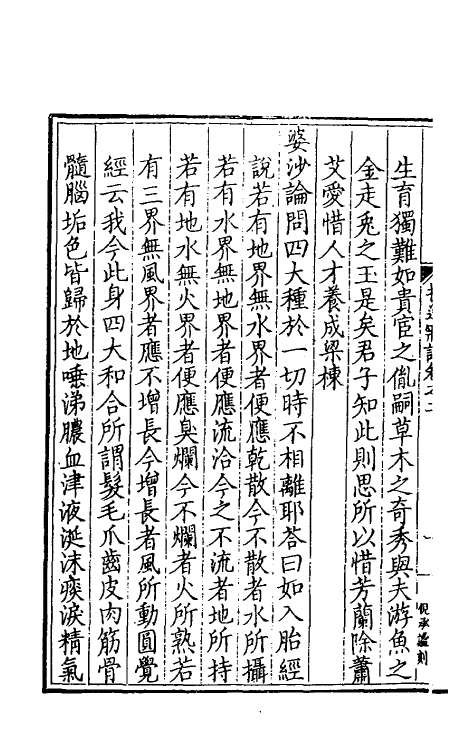 生育獨難如貴宦之胤嗣草木之奇秀與夫游魚之
金走兎之玉是矣君子知此則思所以惜芳蘭除蕭
艾愛惜人才養成梁棟
婆沙論問四大種於一切時不相離耶荅曰如入胎經
說若有地界無水界者便應乾散今不散者水所攝
若有水界無地界者便應流洽今之不流者地所持
若有地水無火界者便應臭爛今不爛者火所熟若
有三界無風界者應不增長今增長者風所動圓覺
經云我今此身四大和合所謂髮毛爪齒皮肉筋骨
髓腦垢色皆歸於地唾涕膿血津液涎沫痰淚精氣